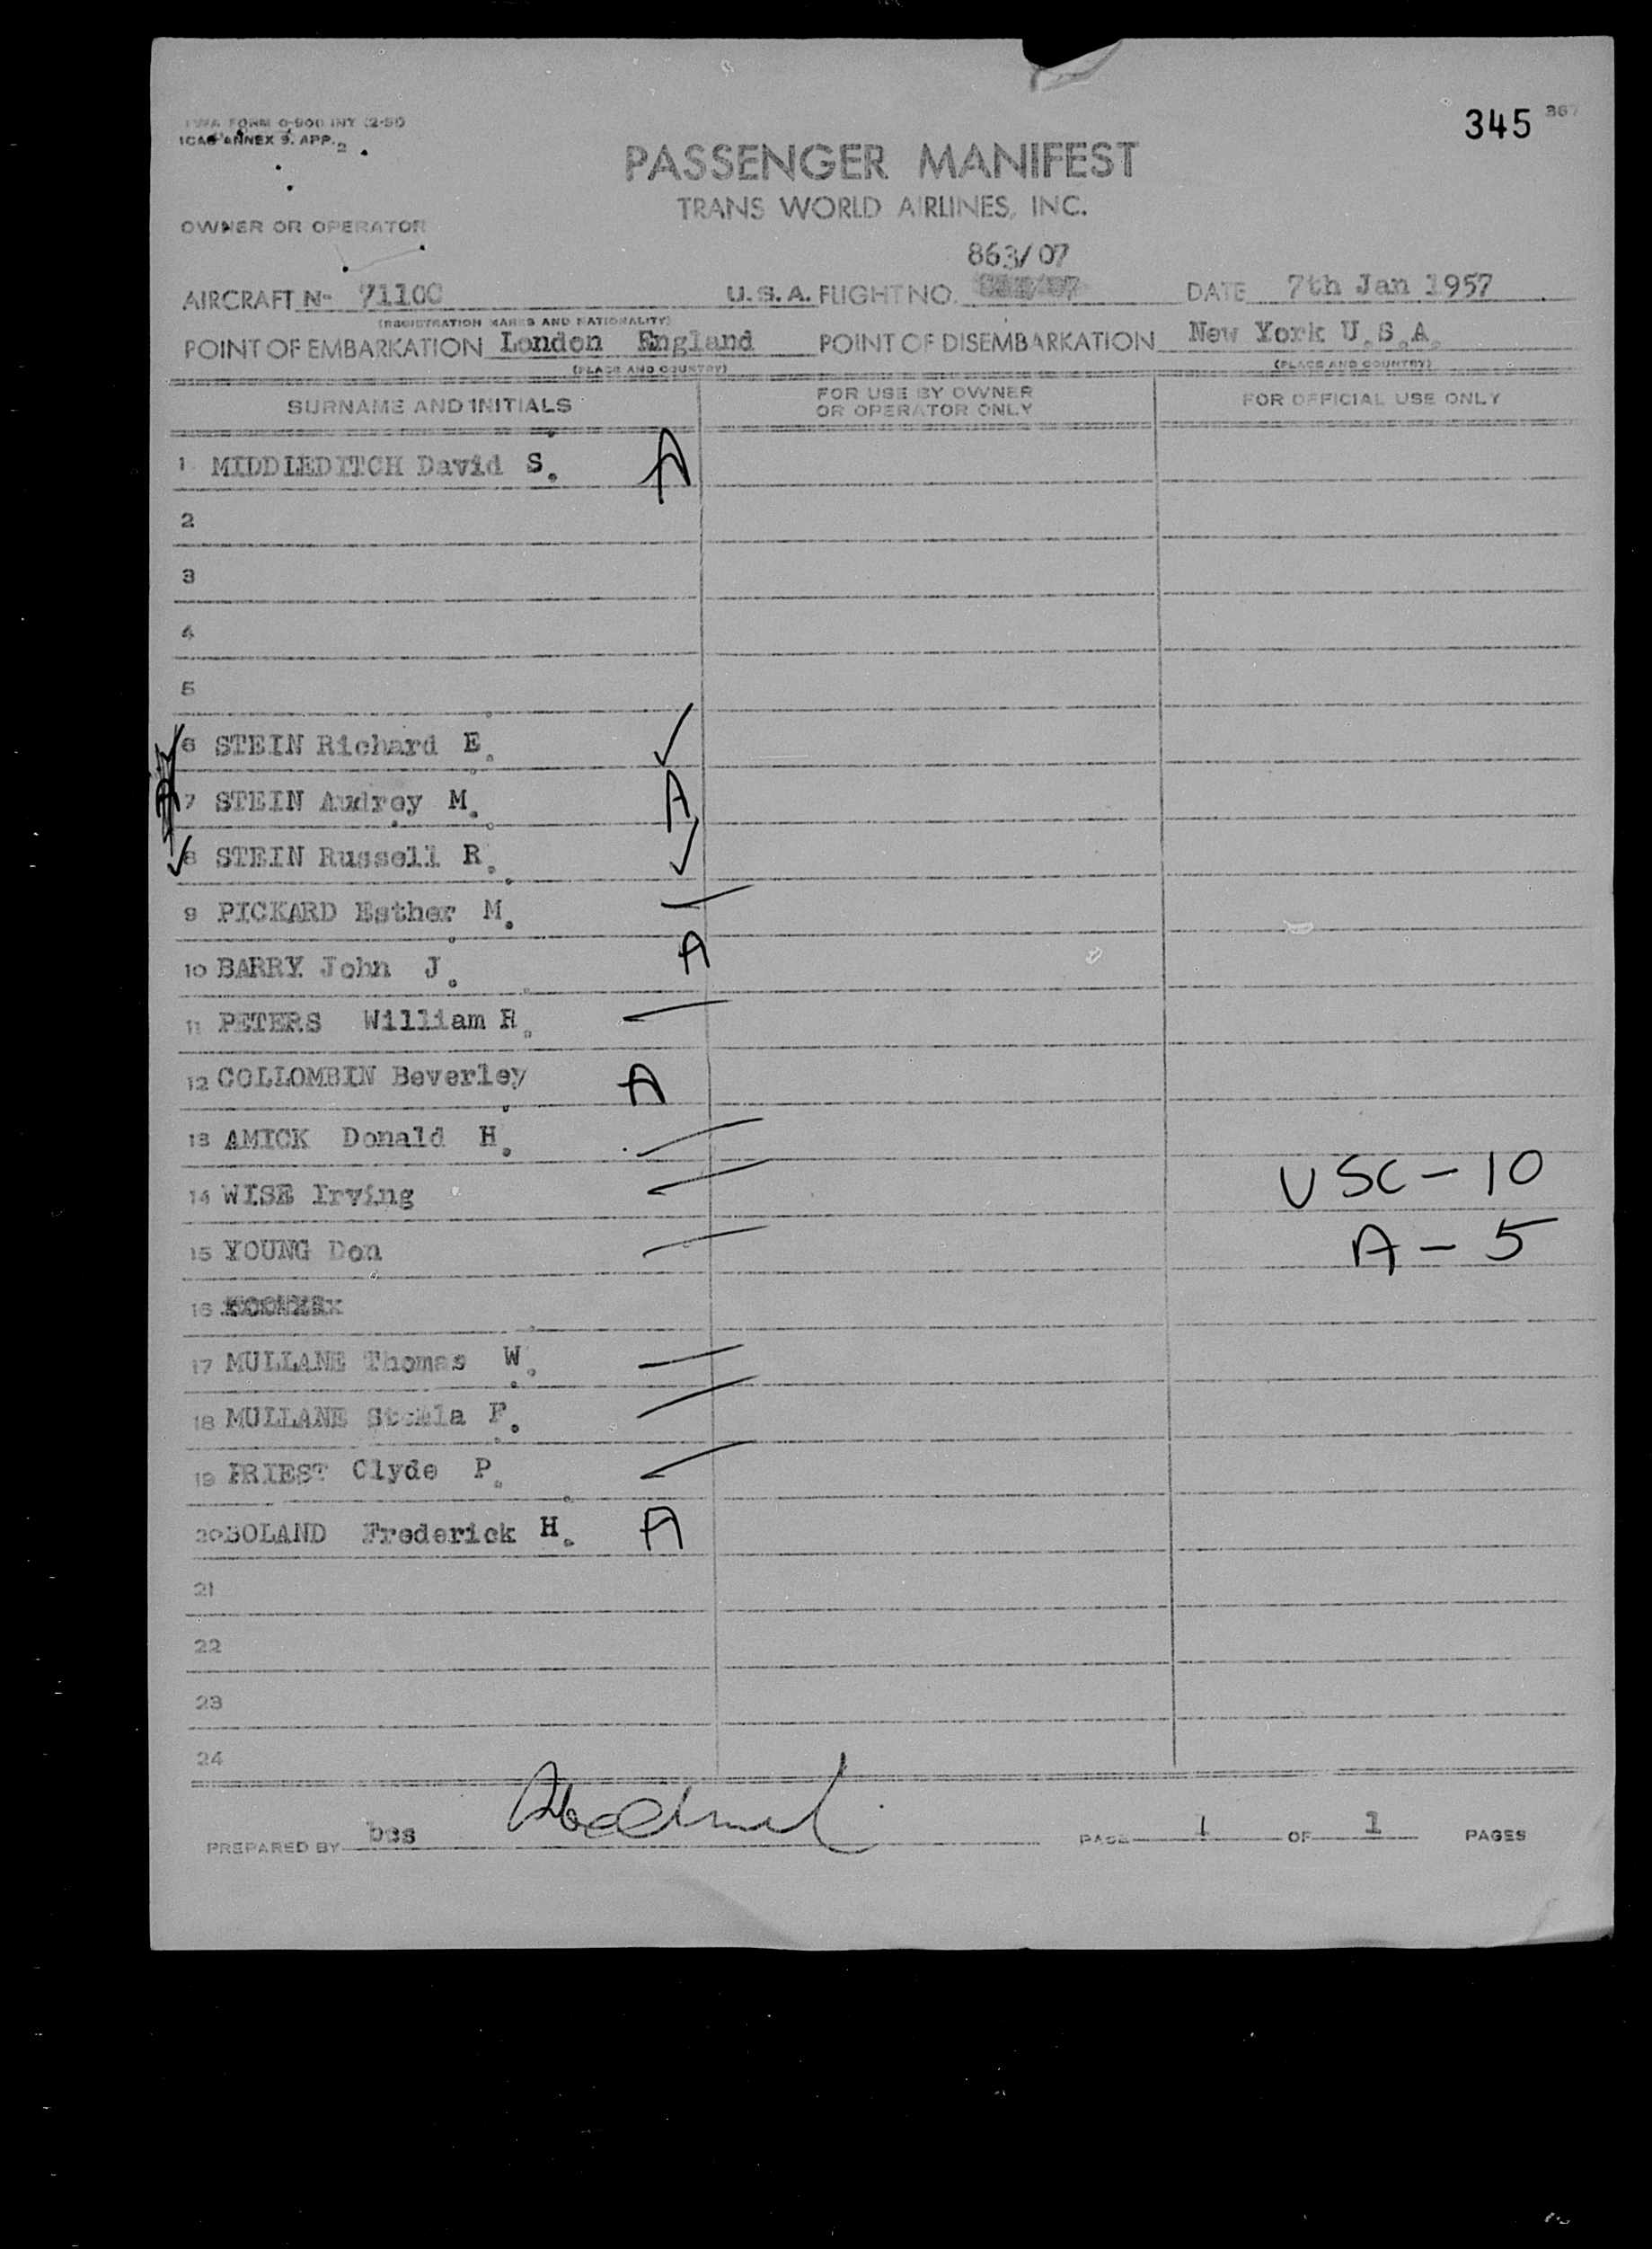 TWA FORM O-900 INT (2-51)
ICAO ANNEX 9. APP. 2
345 367
PASSENGER MANIFEST
TRANS WORLD AIRLINES, INC.
OWNER OR OPERATOR
863/07
AIRCRAFT N- 71100 U.S.A. FLIGHT NO. DATE 7th Jan 1957
(REGISTRATION MARKS AND NATIONALITY)
POINT OF EMBARKATION London England POINT OF DISEMBARKATION New York U.S.A.
(PLACE AND COUNTRY) (PLACE AND COUNTRY)
SURNAME AND INITIALS FOR USE BY OWNER OR OPERATOR ONLY FOR OFFICIAL USE ONLY
1 MIDDLEDITCH David S. A
2
3
4
5
6 STEIN Richard E. ✓
7 STEIN Audrey M. A
8 STEIN Russell R. ✓
9 PICKARD Esther M.
10 BARRY John J. A
11 PETERS William R.
12 COLLOMBIN Beverley A
13 AMICK Donald H.
14 WISE Irving USC-10
15 YOUNG Don A-5
16
17 MULLANE Thomas W.
18 MULLANE F.
19 PRIEST Clyde P.
20 BOLAND Frederick H. A
21
22
23
24
PREPARED BY bcs PAGE 1 OF 1 PAGES